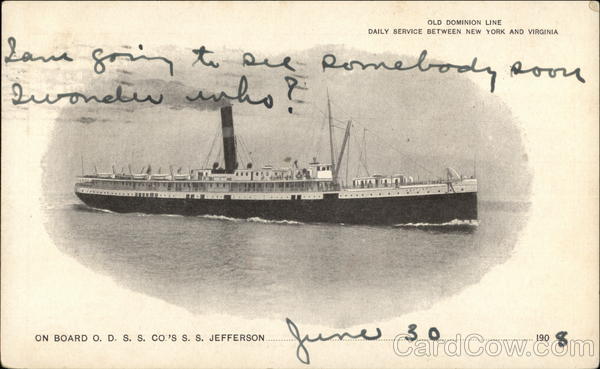 OLD DOMINION LINE
DAILY SERVICE BETWEEN NEW YORK AND VIRGINIA
I am going to see somebody soon
I wonder who?
ON BOARD O. D. S. S. CO.'S S. S. JEFFERSON June 30 1908
CardCow.com